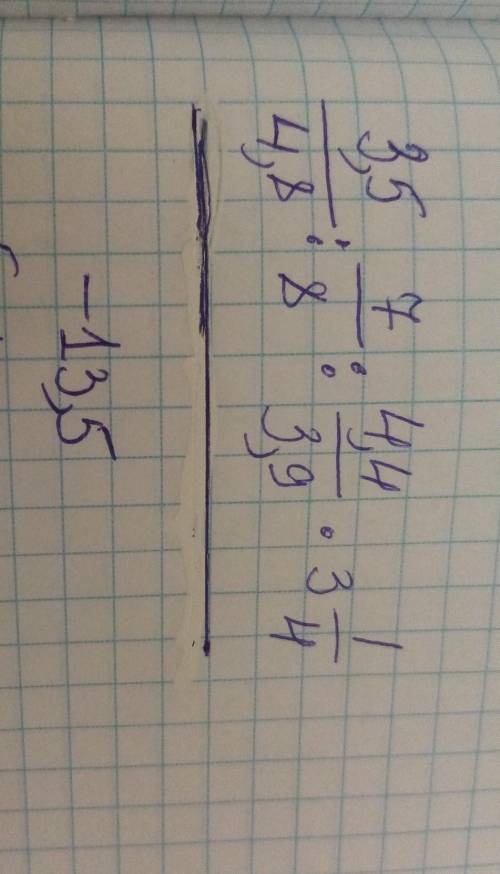 3,5/4,8 : 7/8 : 4,4/3,9 · 3 1/4
-13,5